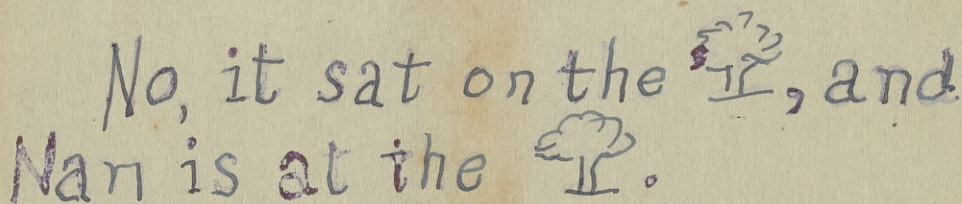 No, it sat on the , and
Nan is at the .